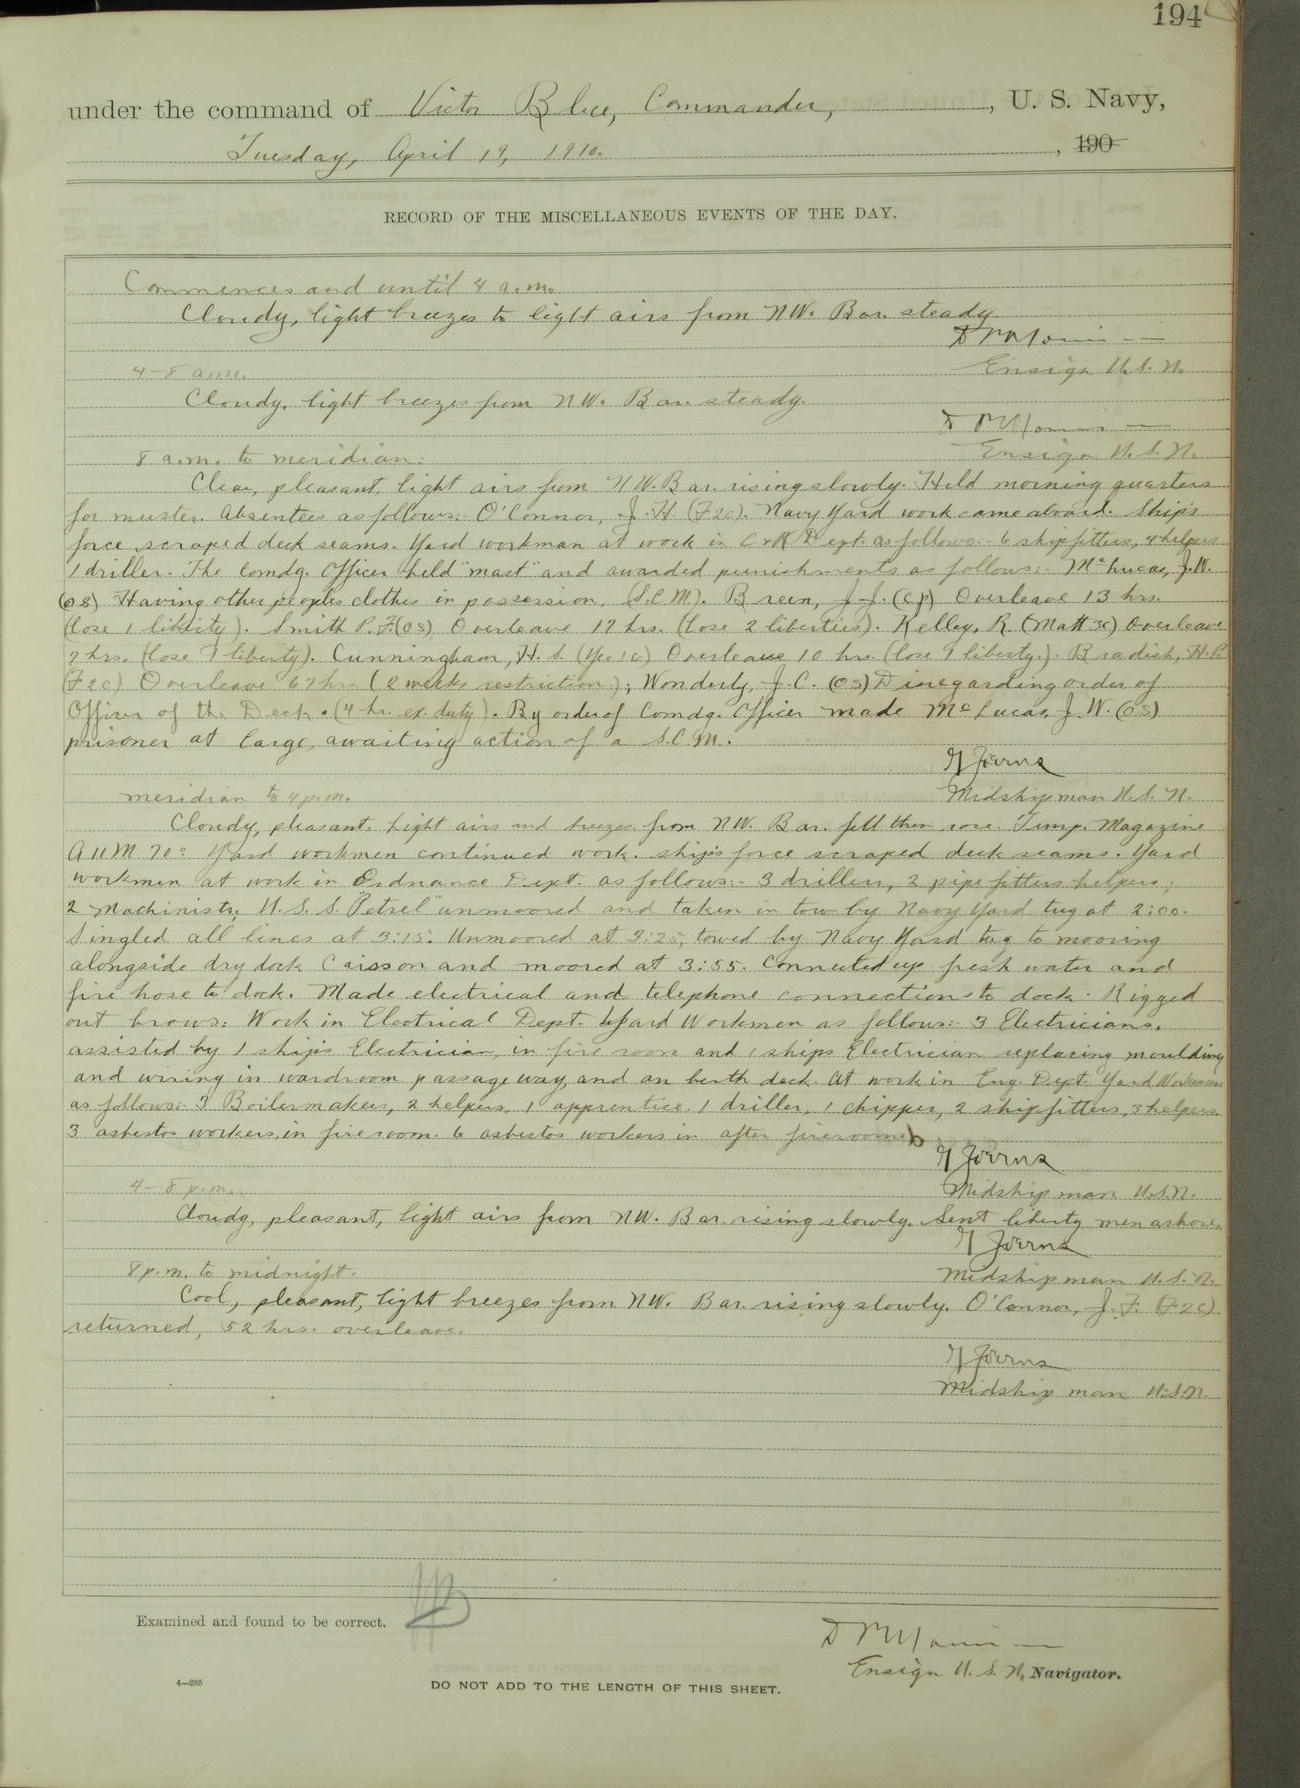 194
under the command of Victor Blue, Commander, , U. S. Navy,
Tuesday, April 19, 1910. , 190
RECORD OF THE MISCELLANEOUS EVENTS OF THE DAY.
Commences and until 4 a.m.
Cloudy, light breezes to light airs from NW. Bar. steady
Ensign U.S.N.
4-8 a.m.
Cloudy, light breezes from NW. Bar. steady.
Ensign U.S.N.
8 a.m. to meridian:
Clear, pleasant, light airs from NW. Bar. rising slowly. Held morning quarters
for muster. Absentees as follows:- O'Connor, J.H. (F2c). Navy Yard work came aboard. Ship's
force scraped deck seams. Yard workman at work in C&R Dept. as follows:- 6 shipfitters, 4 helpers
1 driller. The Comdg. Officer held "mast" and awarded punishments as follows:- McLucas, J.W.
(OS) Having other peoples clothes in possession, (S.C.M). Breen, J.J. (CP) Overleave 13 hrs.
(lose 1 liberty). Smith P.F. (OS) Overleave 17 hrs. (lose 2 liberties). Kelley, R. (Matt3c) Overleave
7 hrs. (lose 1 liberty). Cunningham, H.S. (Yeo1c) Overleave 10 hrs (lose 1 liberty.). Bradish, H.R
(F2c) Overleave 67 hrs (2 weeks restriction); Wonderly, J.C. (OS) Disregarding order of
Officer of the Deck. (4 hr. ex. duty). By order of Comdg. Officer made McLucas, J.W. (OS)
prisoner at large, awaiting action of a S.C.M.
G Joerns
Midshipman U.S.N.
meridian to 4 p.m.
Cloudy, pleasant, light airs and breezes from NW. Bar. fell then rose. Temp. Magazine
A11M 70° Yard workmen continued work. ship's force scraped deck seams. Yard
workmen at work in Ordnance Dept. as follows:- 3 drillers, 2 pipe fitters helpers;
2 Machinists, U.S.S. "Petrel" unmoored and taken in tow by Navy Yard tug at 2:00.
Singled all lines at 3:15. Unmoored at 3:25, towed by Navy Yard tug to mooring
alongside dry dock Caisson and moored at 3:55. Connected up fresh water and
fire hose to dock. Made electrical and telephone connections to dock. Rigged
out brows: Work in Electrical Dept. by Yard Workmen as follows:- 3 Electricians,
assisted by 1 ship's Electrician, in fire room and 1 ships Electrician replacing moulding
and wiring in wardroom passageway, and on berth deck. At work in Eng. Dept. Yard Workmen
as follows:- 3 Boilermakers, 2 helpers, 1 apprentice. 1 driller, 1 chipper, 2 shipfitters, 3 helpers.
3 asbestos workers, in fireroom. 6 asbestos workers in after fireroom.
G Joerns
Midshipman U.S.N.
4-8 p.m.
Cloudy, pleasant, light airs from NW. Bar. rising slowly. Sent liberty men ashore.
G Joerns
Midshipman U.S.N.
8 p.m. to midnight.
Cool, pleasant, light breezes from NW. Bar. rising slowly. O'Connor, J.F. (F2C)
returned, 52 hrs. overleave.
G Joerns
Midshipman U.S.N.
Examined and found to be correct.
Ensign U.S.N, Navigator.
4—265
DO NOT ADD TO THE LENGTH OF THIS SHEET.